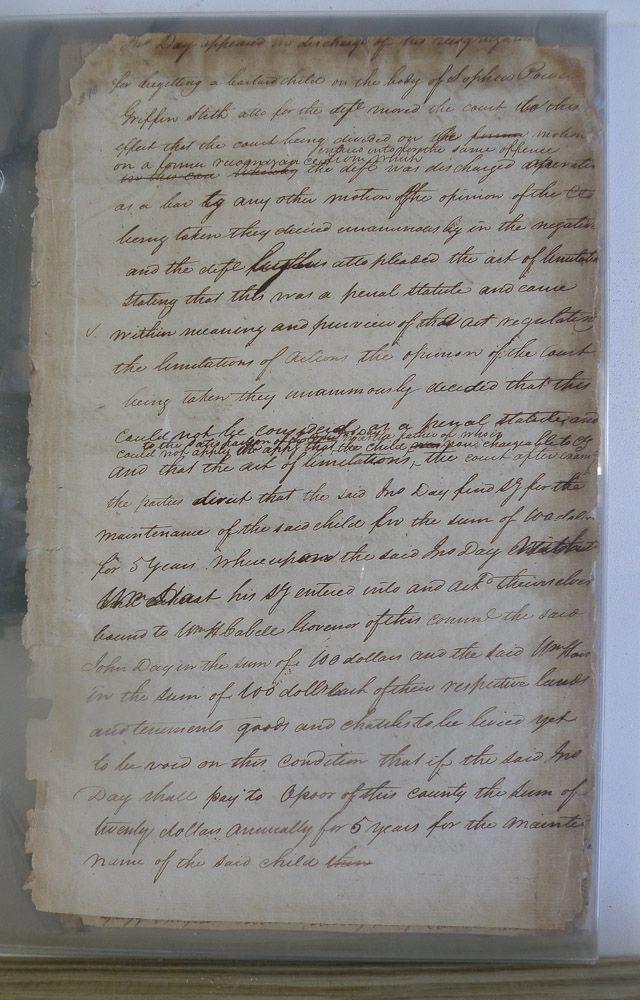 Jno Day appeared in discharge of his recog
for begetting a bastard child on the body of Sophia
Griffin Stith atto for the deft moved the court to this
effect that the court being divided on the former motion
entered into for the same offence
on a former recognizance from which
in this case the deft was discharged
as a bar to any other motion the opinion of the
being taken they decided unanimously in the negative
and the deft by his atto pleaded the act of limitatio
stating that this was a penal statute and came
v. within meaning and purview of that act regulating
the limitations of actions the opinion of the court
being taken they unanimously decided that this
could not be considered as a penal statute and
to the satisfaction of father of
could not apply the child chargeable to
and that the act of limitations, the court after
the parties direct that the said Jno Day find sy for the
maintenance of the said child in the sum of 100 dollars
for 5 years Whereupon the said Jno Day
his sy entered into and ackd themselves
bound to Wm H Cabell Governor of this comml the said
John Day in the sum of 100 dollars and the said Wm
in the sum of 100 dolls each of their respective lands
and tenements goods and chattels to be levied yet
to be void on this condition that if the said Jno
Day shall pay to Opoor of this county the sum of
twenty dollars annually for 5 years for the mainte
nance of the said child then